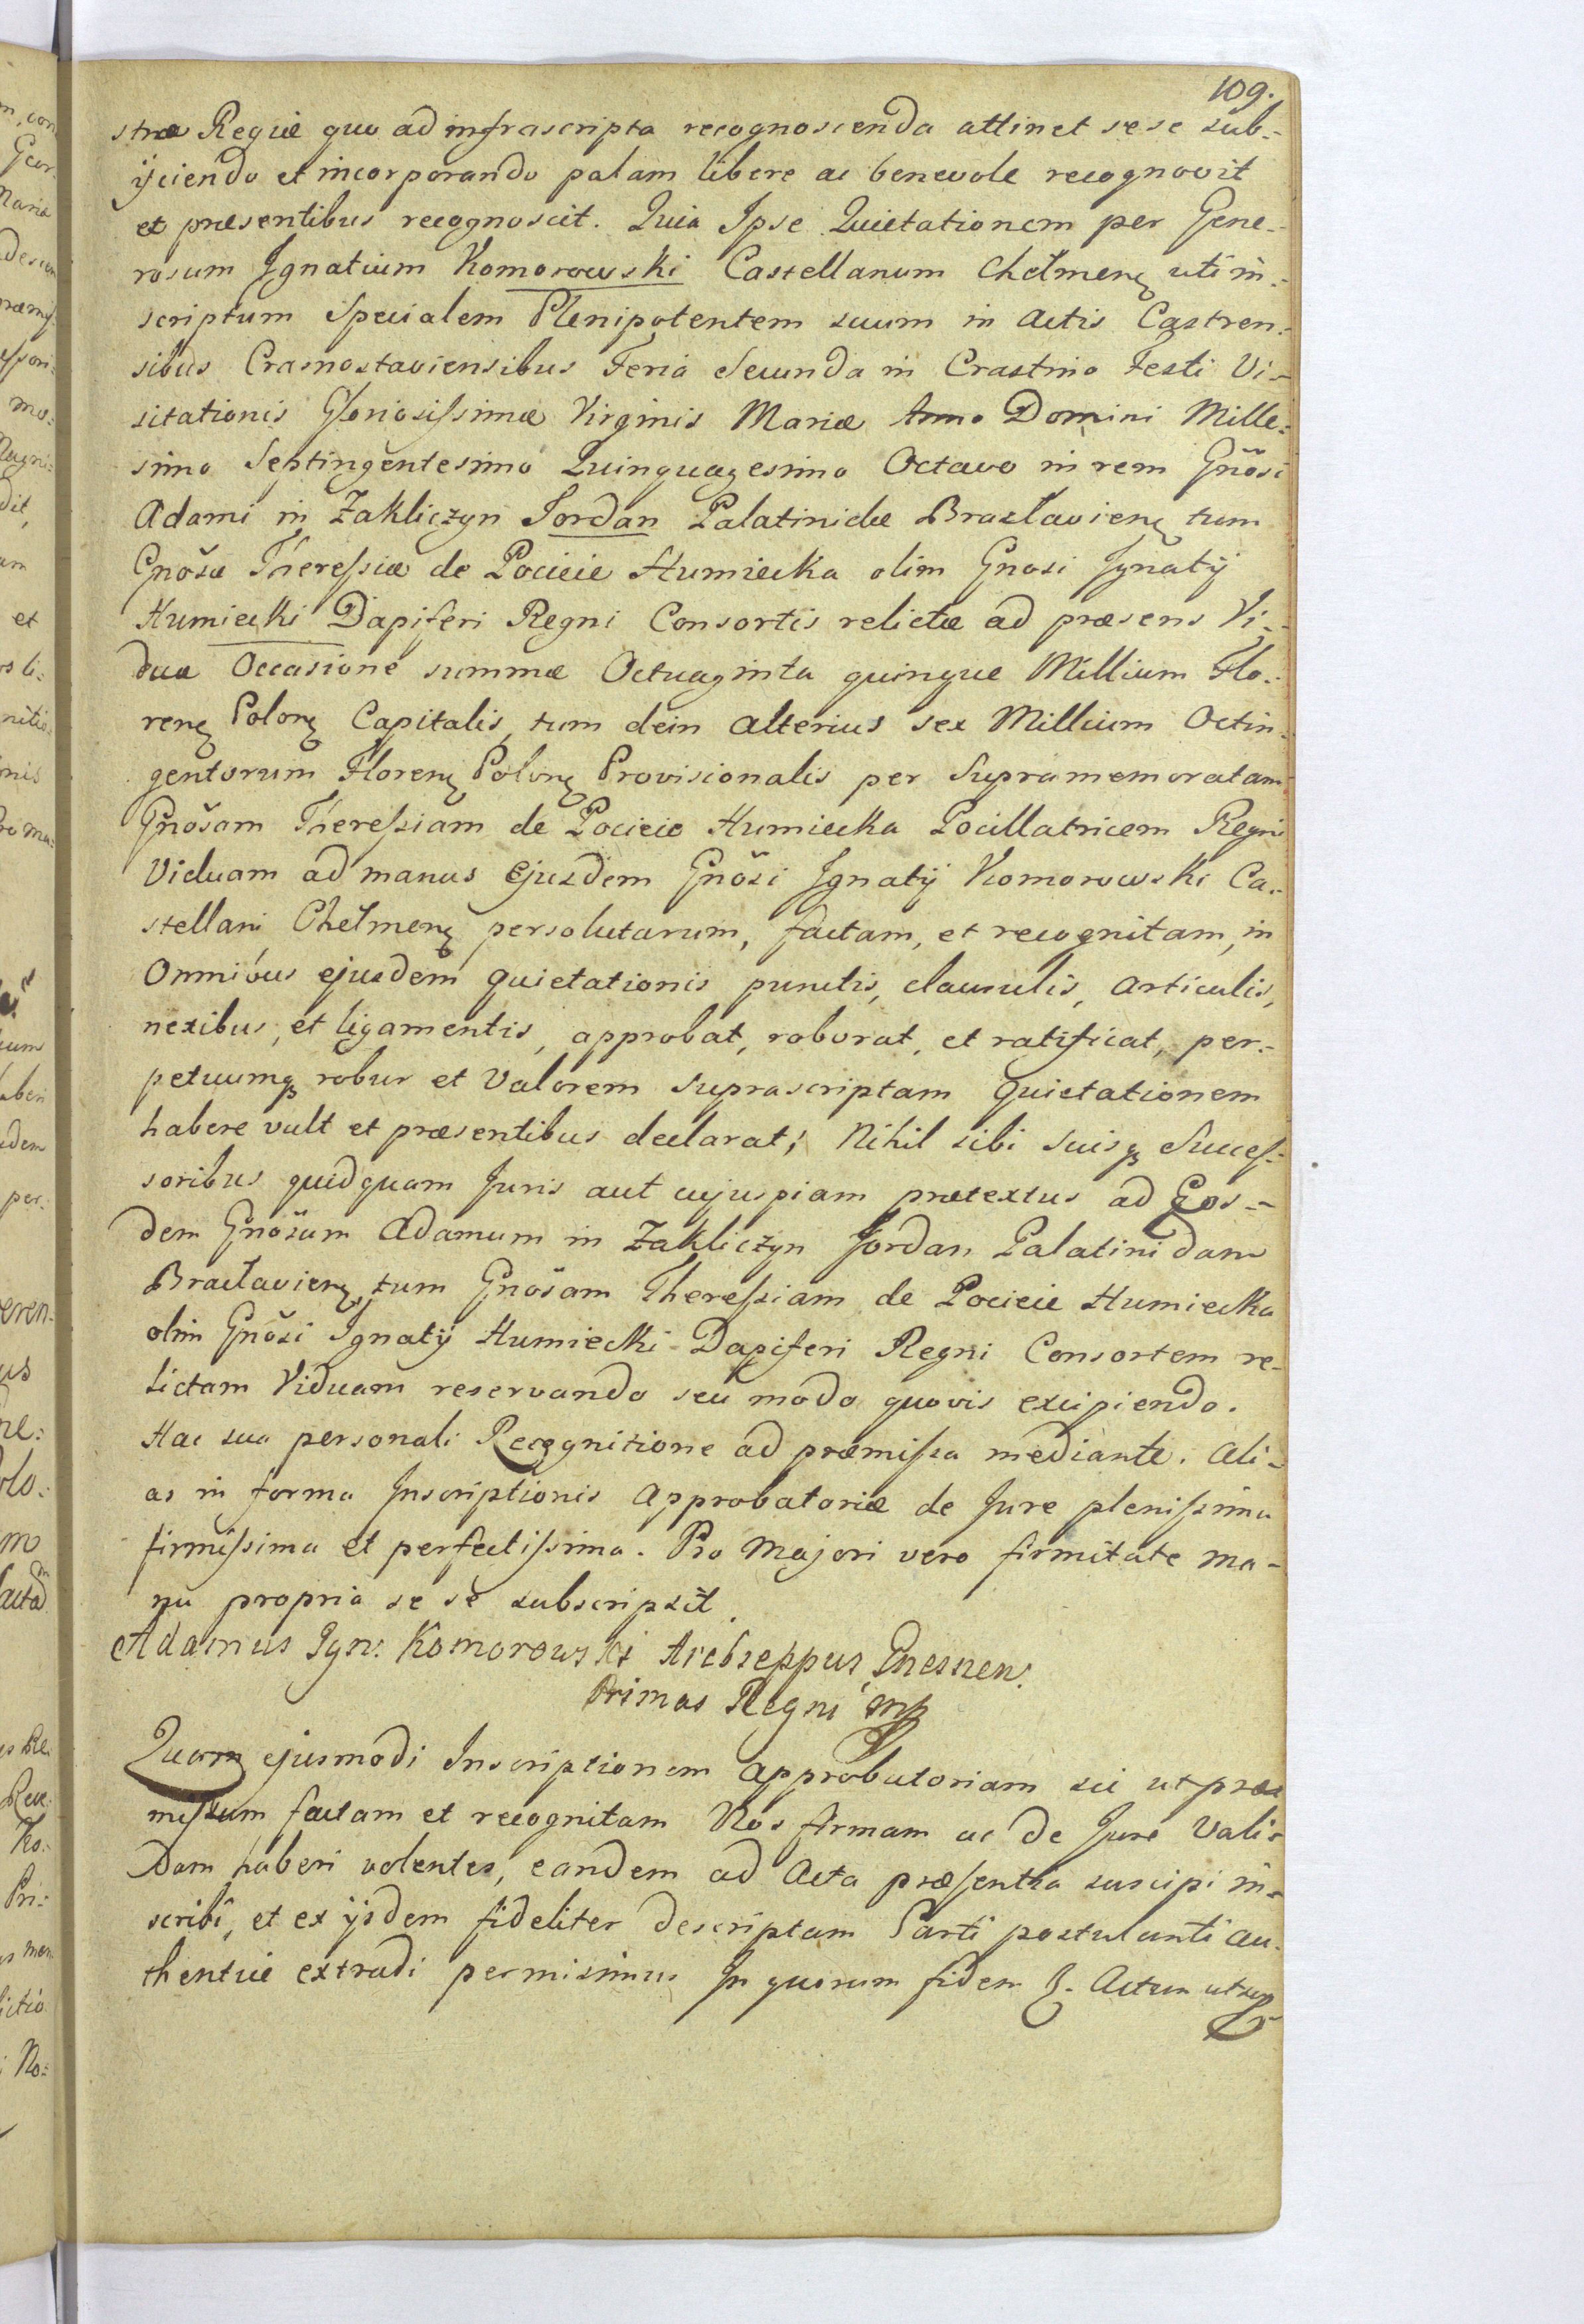 109.
stræ Regiæ quo ad infrascripta recognoscenda attinet sese sub-
ijciendo et incorporando palam libere ac benevole recognovit
et præsentibus recognoscit. Quia Ipse Quietationem per Gene-
rosum Ignatium Komorowski Castellanum Chełmenę uti in-
scriptum Specialem Plenipotentem suum in Actis Castren-
sibus Crasnostaviensibus Feria Secunda in Crastino Festi Vi-
sitationis Gloriosissimæ Virginis Mariæ Anno Domini Mille-
simo Septingentesimo Quinquagesimo Octavo in rem Gnõsi
Adami in Zakliczyn Jordan Palatinidæ Bracłavienę tum
Gnõsæ Theressiæ de Pocieie Humiecka olim Gnosi Ignatij
Humiecki Dapiferi Regni Consortis relictæ ad præsens Vi-
duæ Occasione summæ Octuaginta quinque Millium Flo-
renę Polonę Capitalis, tum dein alterius sex Millium Octin-
gentorum Florenę Polonę Provisionalis per Supramemoratam
Gnõsam Theressiam de Pocieie Humiecka Pocillatricem Regni
Viduam ad manus Ejusdem Gnõsi Ignatij Komorowski Ca-
stellani Chełmenę persolutarum, factam, et recognitam, in
Omnibus ejusdem quietationis punctis, clausulis, articulis,
nexibus, et ligamentis, approbat, roborat, et ratificat, per-
petuumqȝ robur et Valorem suprascriptam quietationem
habere vult et præsentibus declarat; Nihil sibi suisqȝ Succes-
soribus quidquam Juris aut cujuspiam prætextus ad Eos-
dem Gnõsum Adamum in Zakliczyn Jordan Palatinidam
Bracłavienę, tum Gnõsam Theressiam de Pocieie Humiecka
olim Gnõsi Ignatij Humiecki Dapiferi Regni Consortem re-
lictam Viduam reservando seu modo quovis excipiendo.
Hac sua personali Recognitione ad præmissa mediante. Ali-
as in forma Inscriptionis Approbatoriæ de Jure plenissima
firmissima et perfectissima. Pro Majori vero firmitate ma-
nu propria se se subscripsit.
Adamus Ign: Komorowski Archieppus Gnesnen:
Primas Regni mp
Quam ejusmodi Inscriptionem approbatoriam sic ut præ
missum factam et recognitam Nos firmam ac de Jure Vali-
dam haberi volentes, eandem ad Acta præsentia suscipi in-
scribi, et ex ijsdem fideliter descriptam Parti postulanti au-
thentice extradi permisimus In quorum fidem &. Actum ut sup